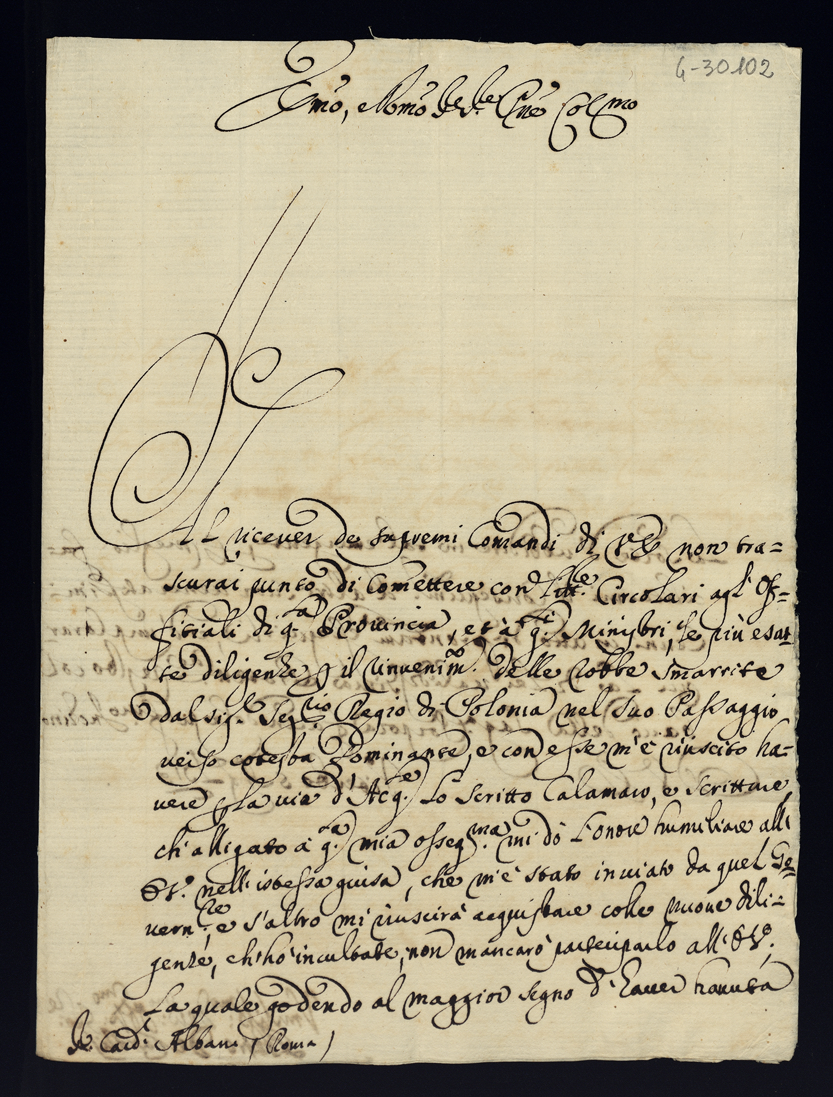 4-30102
Emo, e Rmo Sre, Sre Pne Colmo
Al ricever de supremi Comandi di V.E. non tra=
scurai punto di Comettere con Littre Circolari agl' Of=
fitiali di qta Provincia, et à qti Ministri, le più esat=
te diligenze p il rinvenimto delle robbe smarrite
dal sigr Segrio Regio di Polonia nel suo Passaggio
verso cotesta Dominante, e con esse m'è riuscito ha=
vere p la via d'Acq. lo scritto Calamaro, e scritture,
ch'alligato à qta mia ossegma mi dò l'onore humiliare all'
E.V. nell'istessa guisa, che m'è stato inviato da quel Go=
vernre, e s'altro mi riuscirà acquistare colle nuove dili=
genze, ch'hò inculcate, non mancarò parteciparlo all'E.V.
La quale godendo al maggior segno d'haver havuta
Se. Card. Albani (Roma)